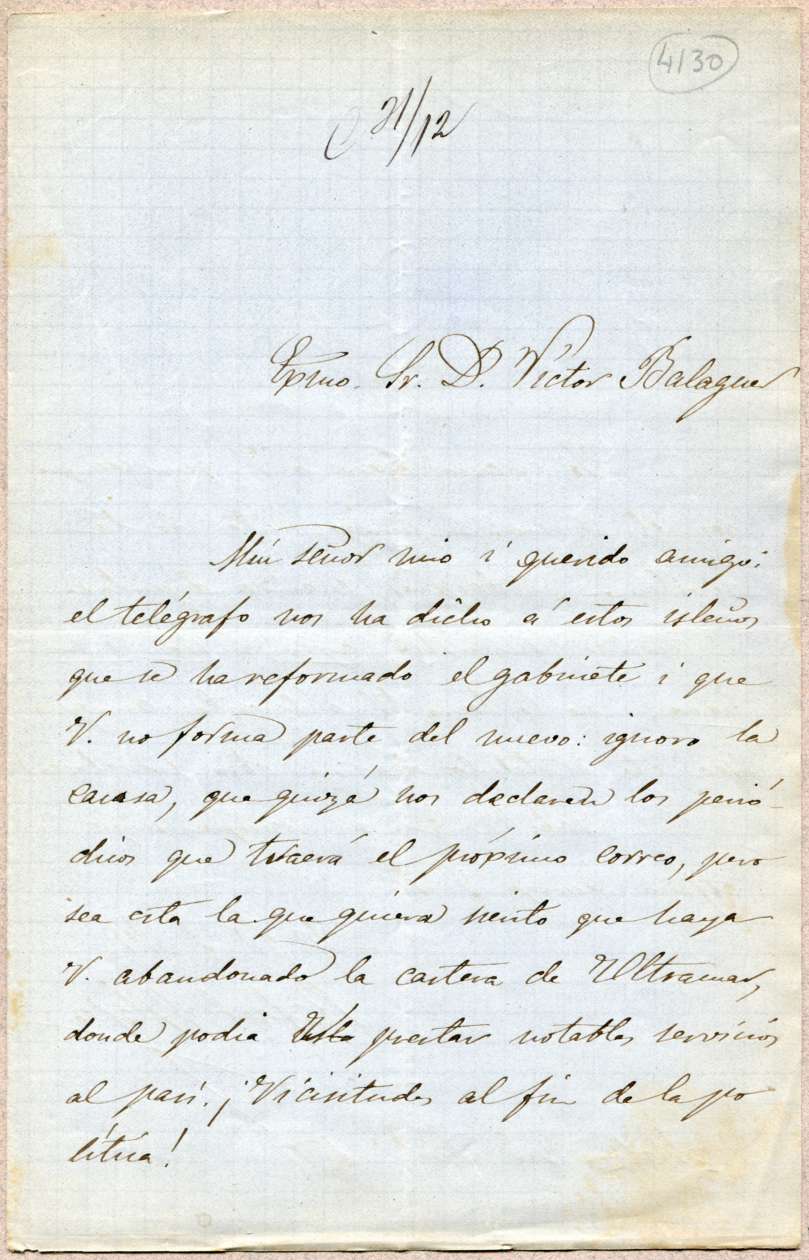 4130
21/12
Exmo. Sr. D. Víctor Balaguer
Mui señor mio i querido amigo:
el telégrafo nos ha dicho á estos isleños
que se ha reformado el gabinete i que
V. no forma parte del nuevo: ignoro la
causa, que quizá nos declaren los perió-
dicos que traerá el próximo correo, pero
sea esta la que quiera siento que haya
V. abandonado la cartera de Ultramar,
donde podia prestar notables servicios
al pais. ¡Vicisitudes al fin de la po
lítica!